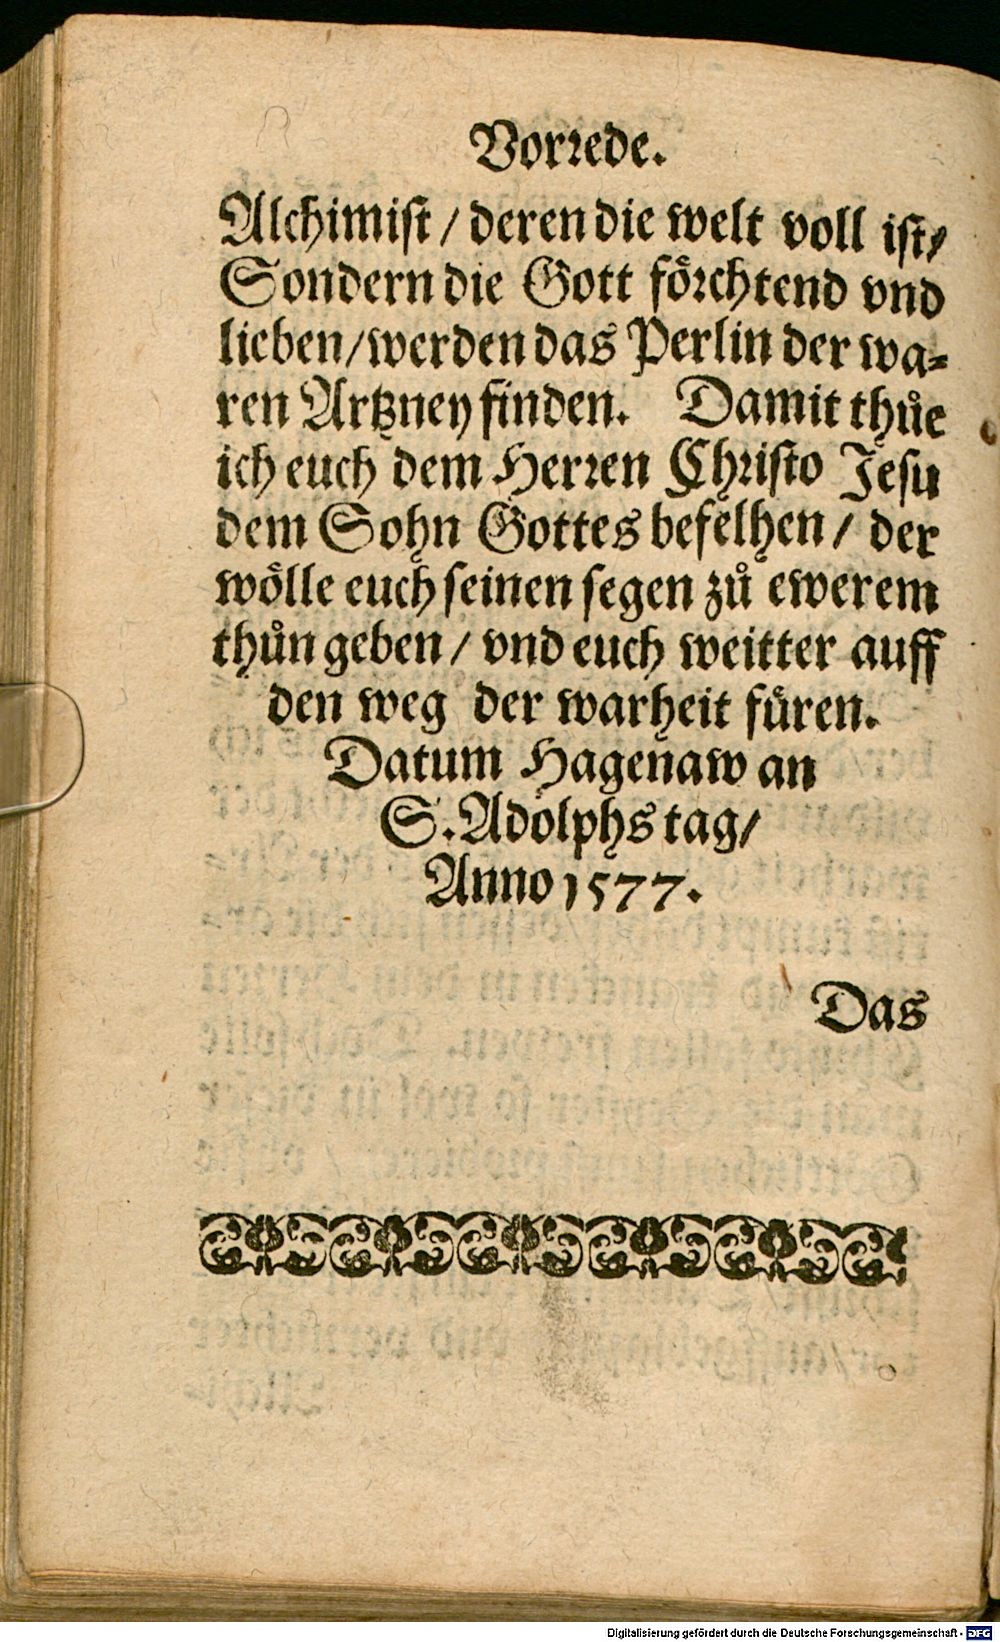 Vorrede.
Alchimist / deren die welt voll ist/
Sondern die Gott förchtend vnd
lieben/werden das Perlin der wa-
ren Artzney finden. Damit thůe
ich euch dem Herren Christo Jesu
dem Sohn Gottes befelhen / der
wölle euch seinen segen zů ewerem
thůn geben / vnd euch weitter auff
den weg der warheit füren.
Datum Hagenaw an
S. Adolphs tag/
Anno 1577.
Das
Digitalisierung gefördert durch die Deutsche Forschungsgemeinschaft - DFG